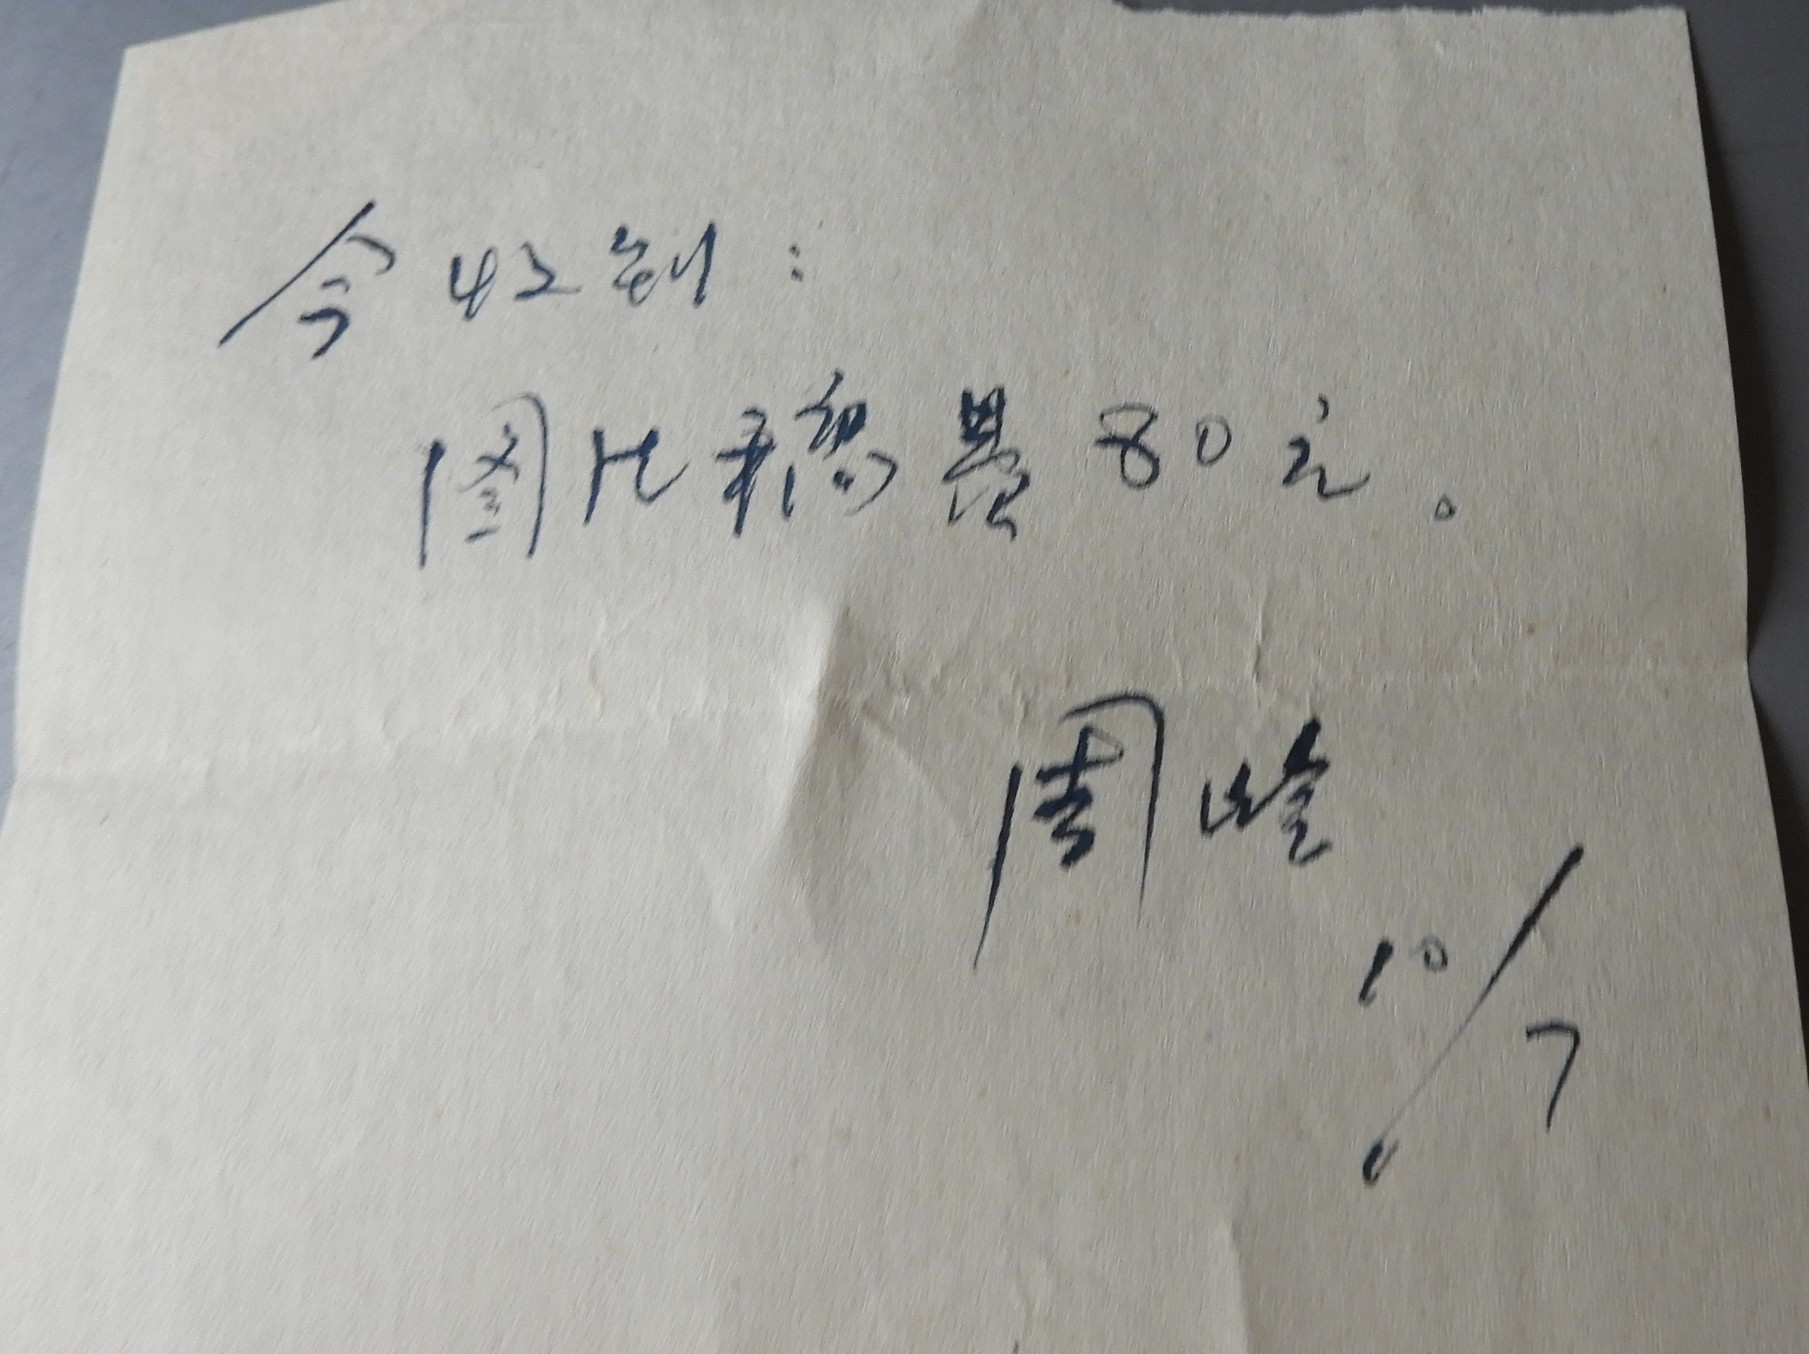 今收到：
图片稿费80元。
周峰
10/7